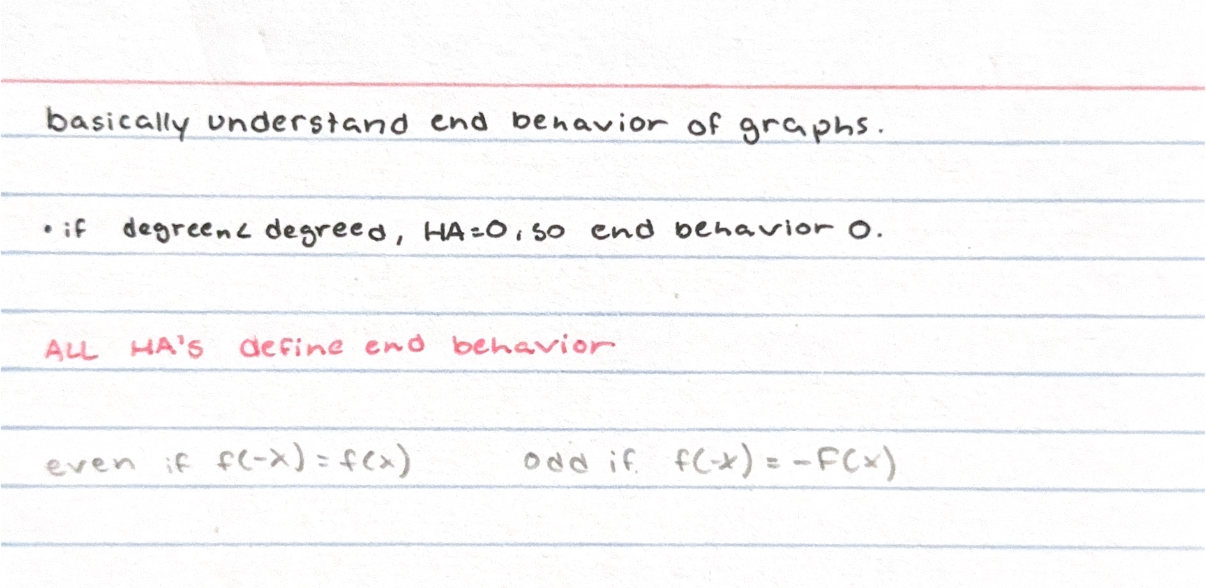 basically understand end behavior of graphs.
• if degreen< degreed, HA=0, so end behavior 0.
ALL HA's define end behavior
even if f(-x) = f(x) odd if f(-x) = -F(x)